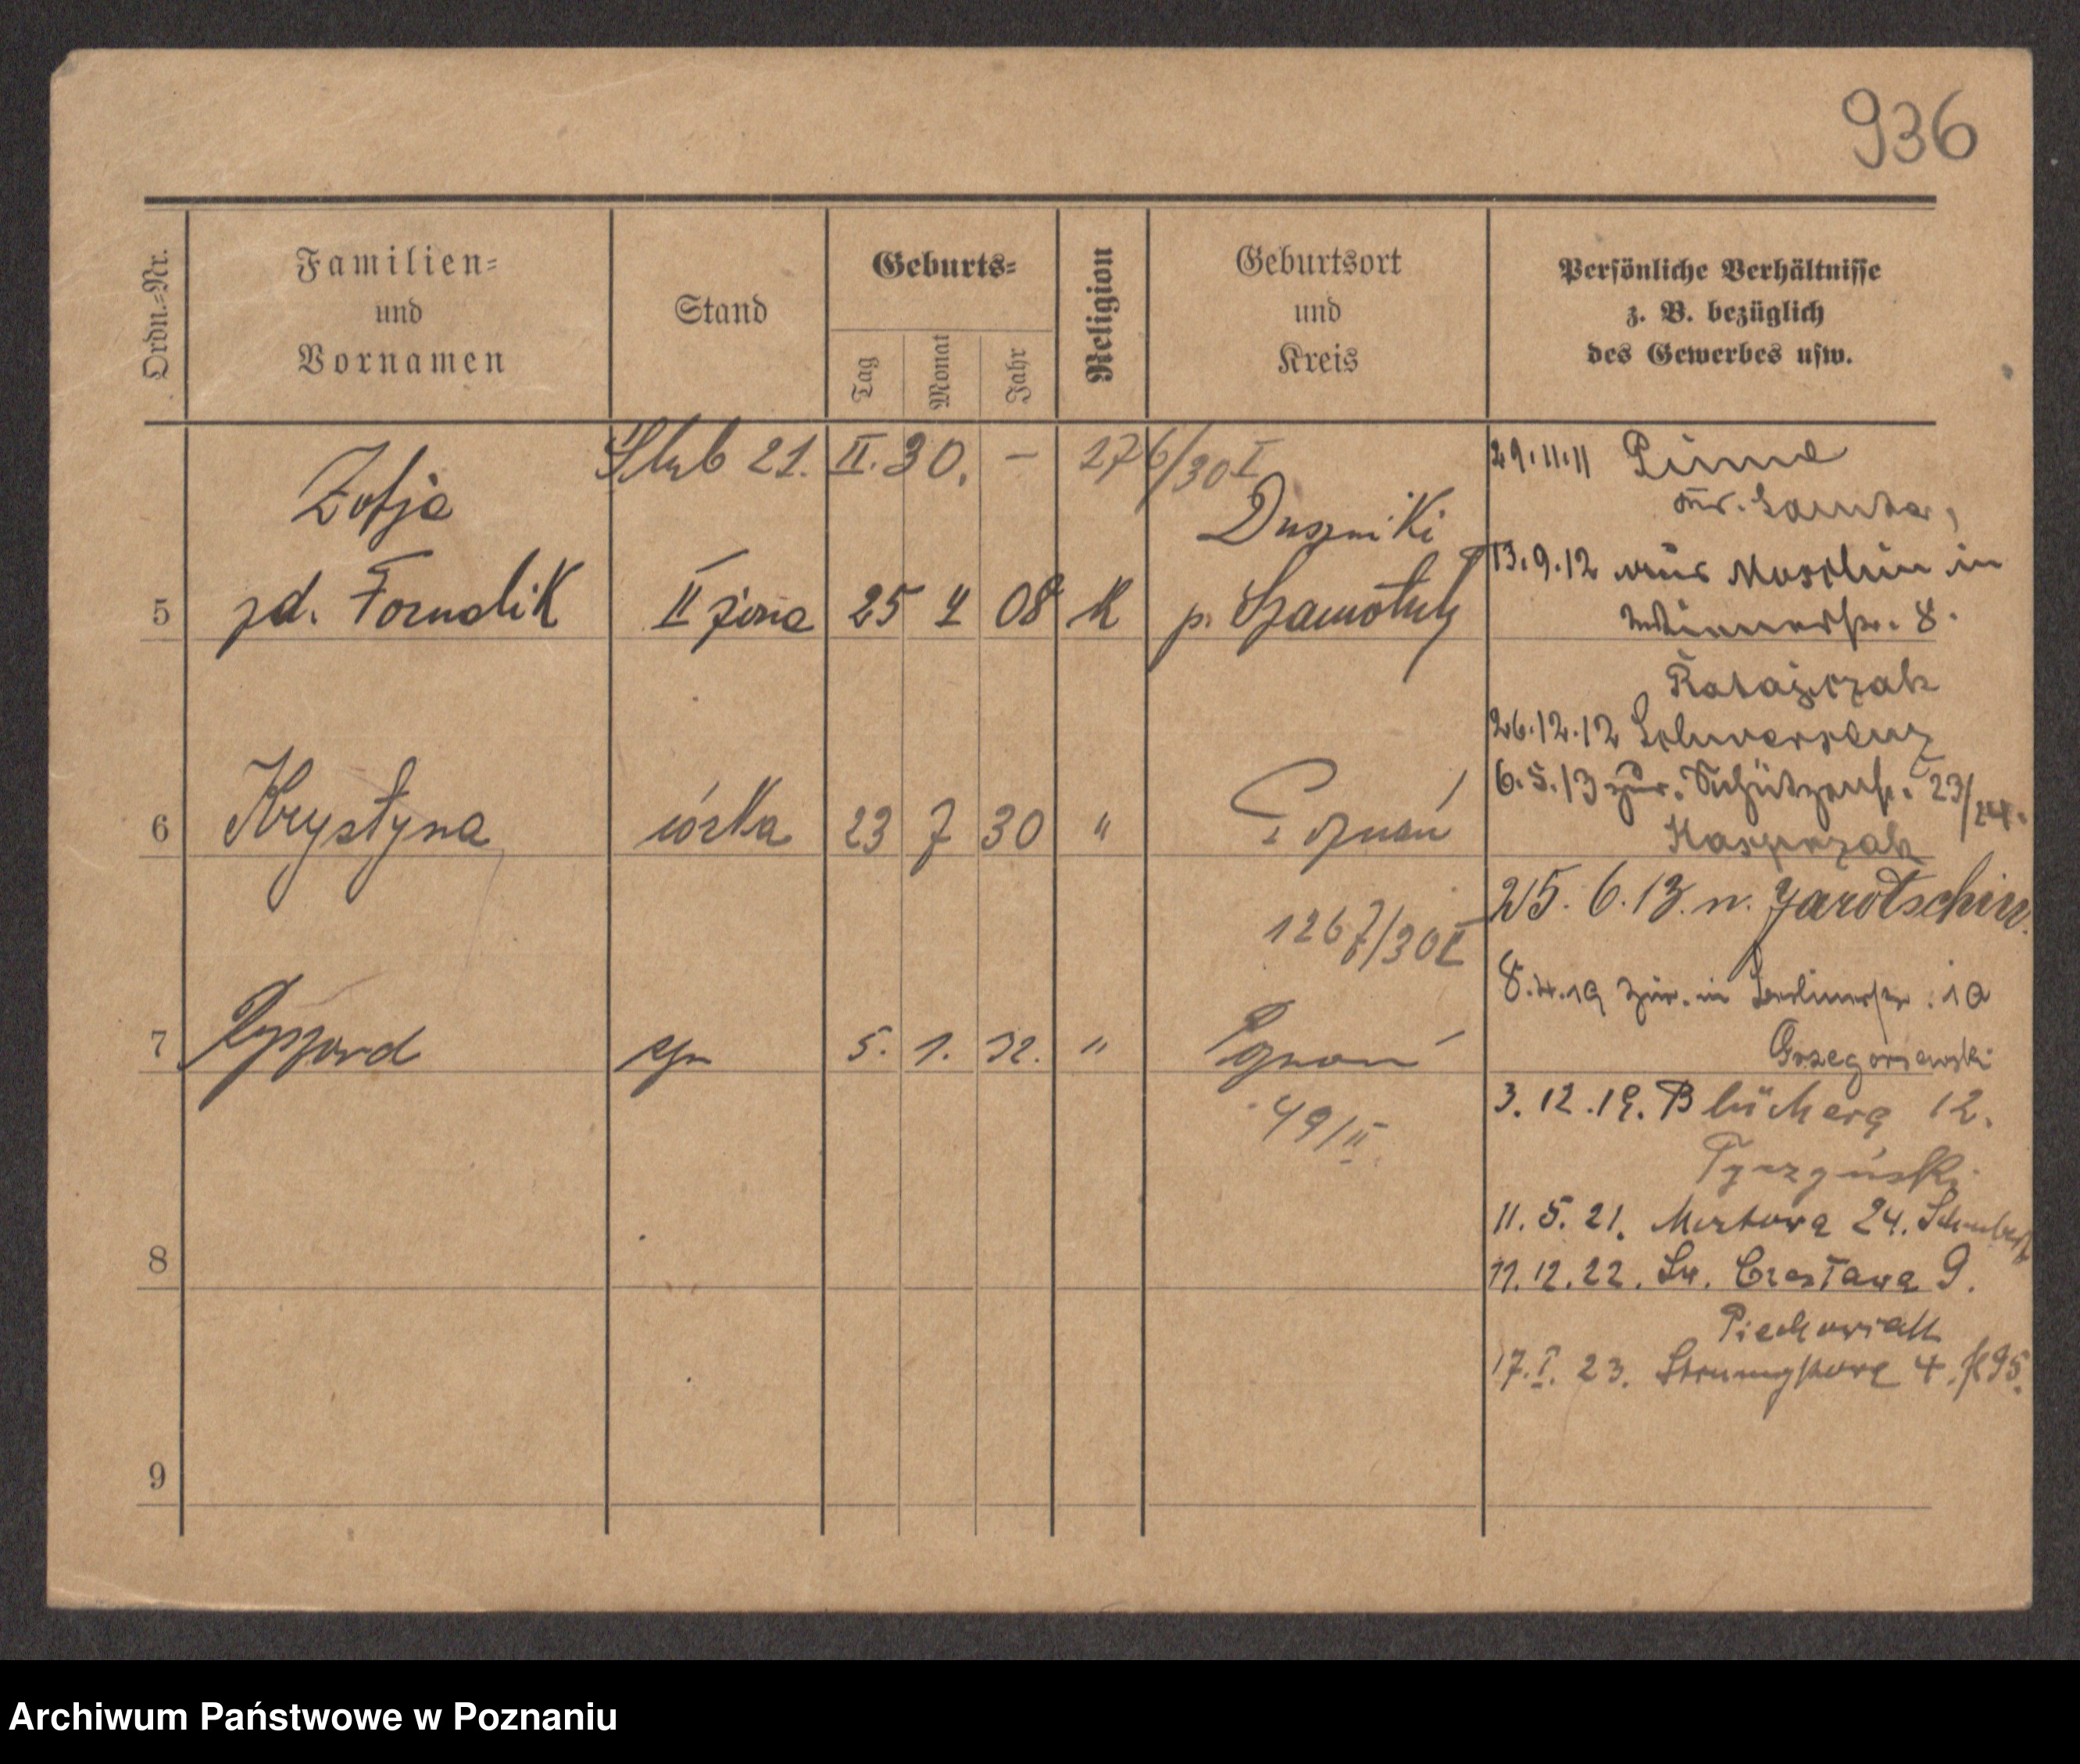 936
Ordn.-Nr.
Familien-
und
Vornamen
Stand
Geburts-
Tag
Monat
Jahr
Religion
Geburtsort
und
Kreis
Persönliche Verhältnisse
z. B. bezüglich
des Gewerbes usw.
Ślub 21. II. 30. – 276/30 I
5 Zofja
zd. Fornalik II żona 25 4 08 K Duszniki
p. Szamotuły
6 Krystyna córka 23 7 30 " Poznań
1267/30 II
7 Ryszard syn 5. 1. 32. " Poznań
49/II
8
9
29.11.11 Pinne
Kr. Samter,
13.9.12 aus Moschin in
8.
Ratajczak
26.12.12 Schwersenz
6.5.13 zur. Schützenstr. 23/24.
Kasprzak
25. 6. 13. n. Jarotschin.
8.4.19 zur. in Berlinerstr. 10
Grzegorzewski
3. 12. 19. Blücherq 12.
Tyrzyński
11. 5. 21. 24. Schubert
11. 12. 22. Św. Czesława 9.
Piechowiak
17. I. 23. Strumykowa 4. 95.
Archiwum Państwowe w Poznaniu